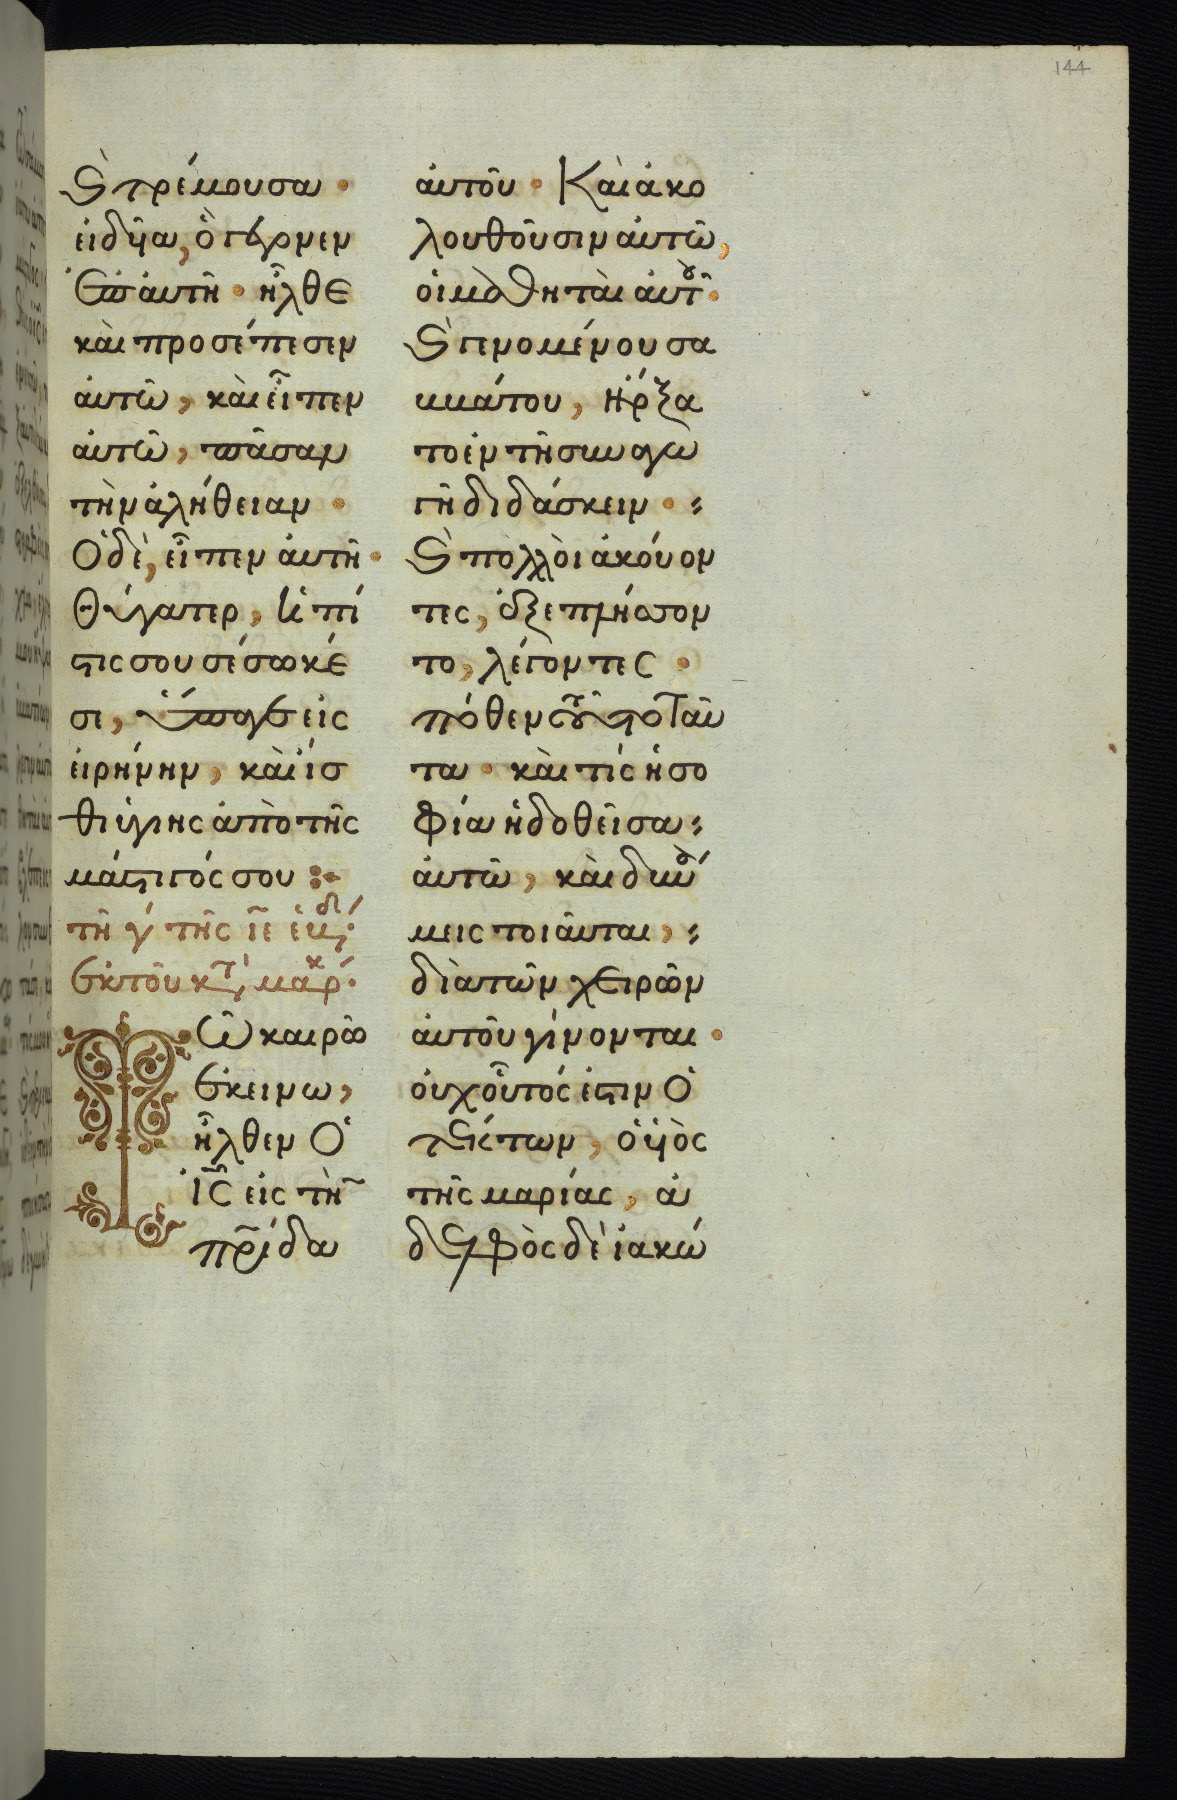 144
ϗ τρέμουσα ·
εἰδῦα, ὃ γέγονεν
ἐπ' ἀυτῆ · ἦλθε
καὶ προσέπεσεν
ἀυτῶ, καὶ εἶπεν
ἀυτῶ, πᾶσαν
τὴν ἀλήθειαν ·
Ὁ δὲ, εἶπεν ἀυτῆ ·
Θύγατερ, ἡ πί
στις σου σέσωκέ
σε, ὕπαγε εἰς
εἰρήνην, καὶ ἴσ
θι ὑγιὴς ἀπὸ τῆς
μάστιγός σου :
τῆ γ' τῆς ιε ἑβδ.
Ἐκ τοῦ κτ μάρκ.
Τῶ καιρῶ
ἐκείνω,
ἦλθεν ὁ
ΙϹ εἰς τὴν
πρίδα
ἀυτοῦ · Καὶ ἀκο
λουθοῦσιν ἀυτῶ,
οἱ μαθηταὶ ἀυτοῦ ·
ϗ γενομένου σα
ββάτου, ἤρξα
το ἐν τῆ συναγω
γῆ διδάσκειν ·
ϗ πολλοὶ ἀκούον
τες, ἐξεπλήσσον
το, λέγοντες ·
πόθεν τούτω ταῦ
τα · καὶ τίς ἡ σο
φία ἡ δοθεῖσα
ἀυτῶ, καὶ δυνά
μεις τοιᾶυται,
διὰ τῶν χειρῶν
ἀυτοῦ γίνονται ·
οὐχ οὗτός ἐστιν ὁ
τέκτων, ὁ ὑὸς
τῆς μαρίας, ἀ
δελφὸς δὲ ἰακώ